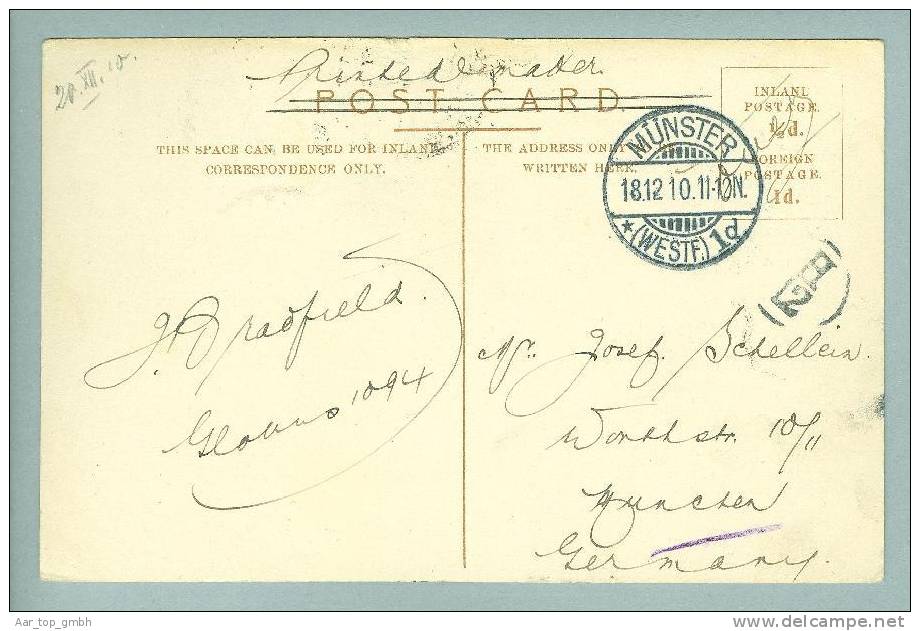 20.XII.10.
Printed matter.
POST CARD
THIS SPACE CAN BE USED FOR INLAND
CORRESPONDENCE ONLY.
THE ADDRESS ONLY
WRITTEN HERE.
INLAND
POSTAGE
½d.
FOREIGN
POSTAGE
1d.
MÜNSTER
18.12 10.11-12N.
* (WESTF.) 1d
J. Bradfield.
Globus 1094
Mr. Josef. Schellein.
Worthstr. 10/II
München
Germany.
Aar_top_gmbh
delcampe.net